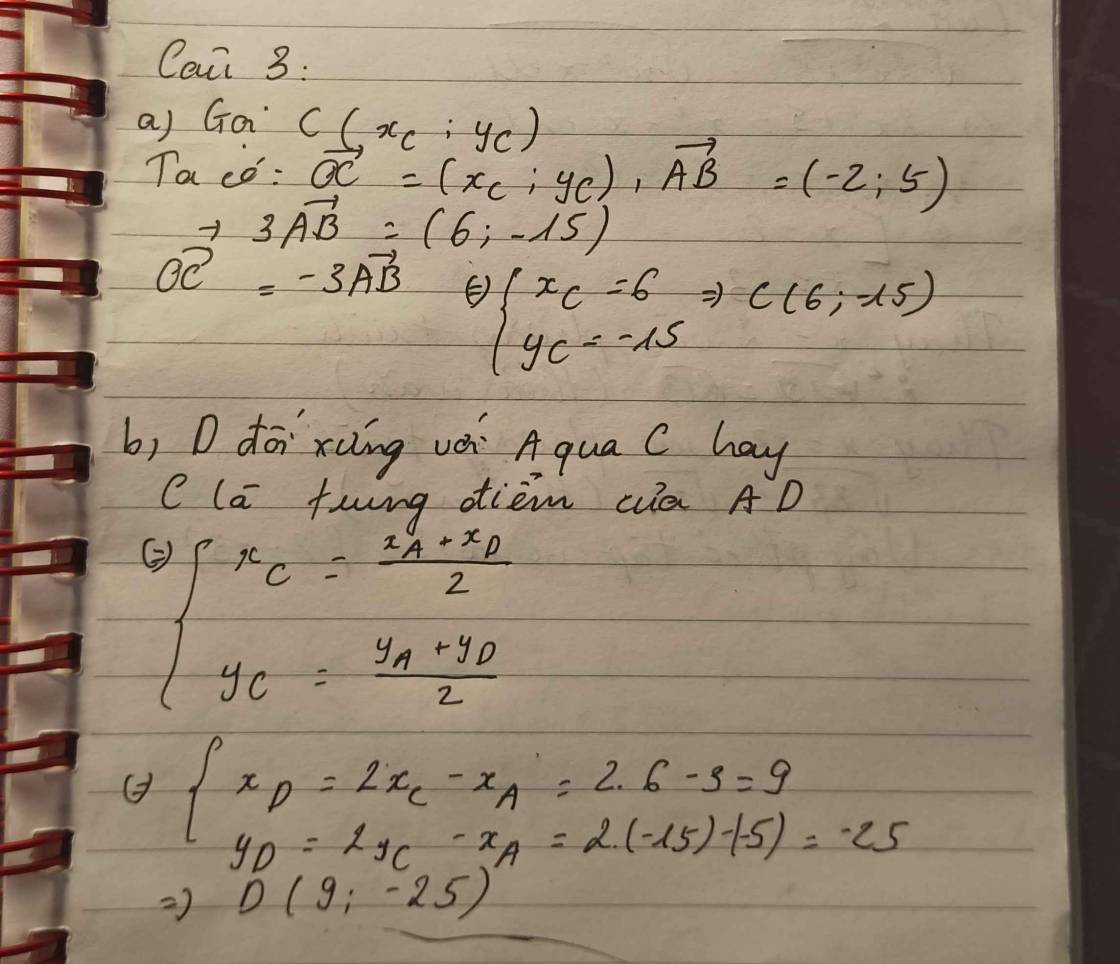 Câu 3:
a) Gọi C ( x_C ; y_C )
Ta có: \overrightarrow{OC} = (x_C ; y_C) , \overrightarrow{AB} = (-2 ; 5)
→ 3\overrightarrow{AB} = (6 ; -15)
\overrightarrow{OC} = -3\overrightarrow{AB} ⇔ { x_C = 6 ⇒ C(6 ; -15)
y_C = -15
b, D đối xứng với A qua C hay
C là trung điểm của AD
⇔ { x_C = \frac{x_A + x_D}{2}
y_C = \frac{y_A + y_D}{2}
⇔ { x_D = 2x_C - x_A = 2.6 - 3 = 9
y_D = 2y_C - x_A = 2.(-15)-(-5) = -25
⇒ D (9 ; -25)